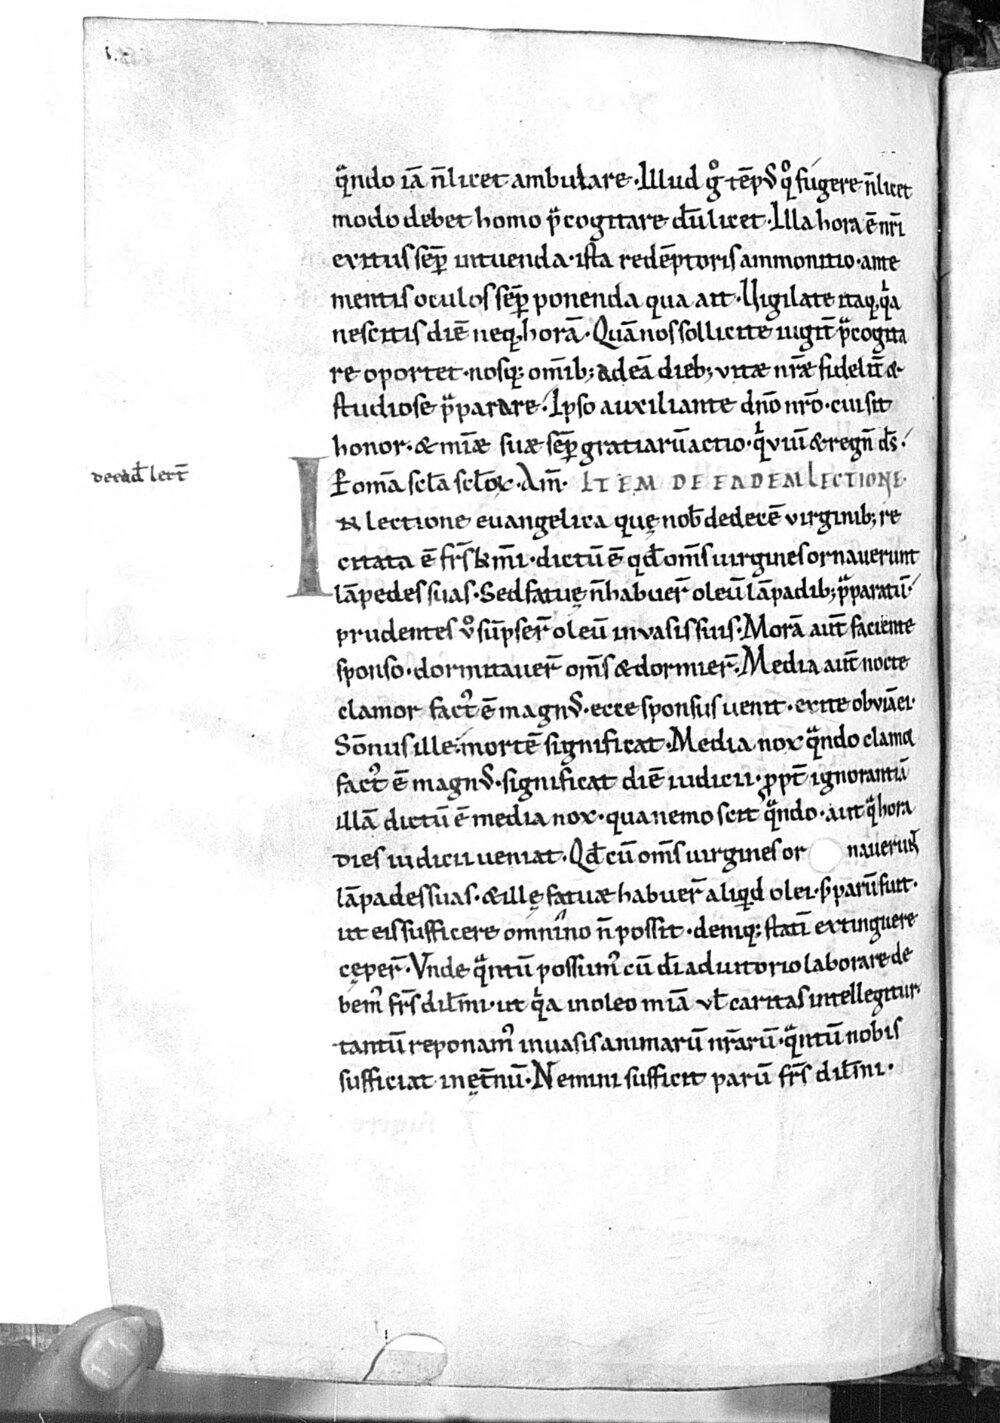 q̄ndo iā n̄ licet ambulare. Illud g̊ tēpꝰ q̊ fugere n̄ licet
modo debet homo p̄cogitare dū licet. Illa hora ē nr̄i
exitus sēp̄ intuenda. ista redēptoris ammonitio. ante
mentis oculos sēp̄ ponenda qua ait. Uigilate itaq; q̄a
nescitis diē neq; horā. Quā nos sollicite uigit̄ p̄cogita
re oportet. nosq; om̄ib; ad eā dieb; vitæ nr̄æ fidelit̄ &
studiose p̄parare. Ipso auxiliante dn̄o nr̄o. cui sit
honor. & mīæ suæ sēp̄ gratiarū actio. q̄ viū & regn̄ d̄s.
P̄ om̄a sc̄la sc̄loꝝ. Am̄. ITEM DE EADEM LECTIONE.
de ead̄ lect̄
IN lectione euangelica quę nob̄ de decē virginib; re
citata ē fr̄s km̄i. dictū ē qd̄ om̄s uirgines ornauerunt
lāpedes suas. Sed fatuę n̄ habuer̄ oleū lāpadib; p̄paratū.
prudentes v̊ sūpser̄ oleū in vasis suis. Morā aut̄ faciente
sponso. dormitauer̄ om̄s & dormier̄. Media aut̄ nocte
clamor factꝰ ē magnꝰ. ecce sponsus uenit. exite obviā ei.
Sōnus ille. mortē significat. Media nox q̄ndo clamor
factꝰ ē magnꝰ. significat diē iudicii. p̱pt̄ ignorantiā
illā dictū ē media nox. quia nemo scit q̄ndo. aut q̄ hora
dies iudicii ueniat. Qd̄ cū om̄s uirgines or nauerunt
lāpades suas. & illę fatuæ habuer̄ aliqid olei. s; parū fuit.
ut eis sufficere omnino n̄ possit. deniq; statī extinguere
cęper̄. Vnde q̄ntū possumꝰ cū d̄i adiutorio laborare de
bemꝰ fr̄s dil̄mi. ut q̄a in oleo mīa ul̄ caritas intellegitur.
tantū reponamꝰ in uasis animarū nr̄arū. q̄ntū nobis
sufficiat in ęt̄nū. Nemini sufficit parū fr̄s dil̄mi.